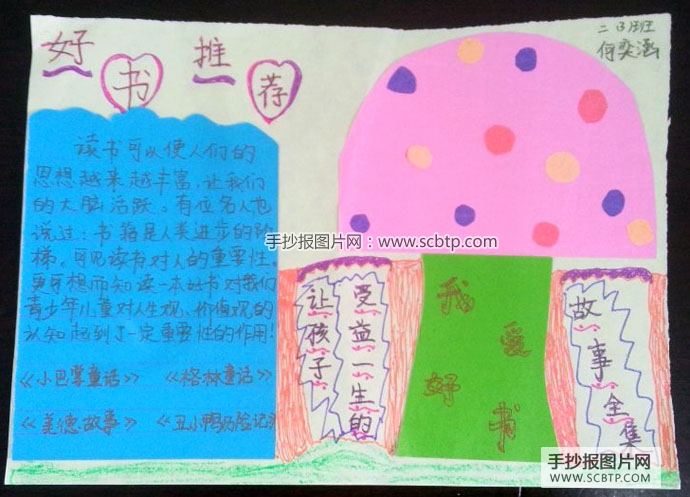 好书推荐
二(3)班
何奕涵
读书可以使人们的
思想越来越丰富,让我们
的大脑活跃。有位名人也
说过:书籍是人类进步的阶
梯。可见读书对人的重要性。
可想而知读一本好书对我们
青少年儿童对人生观、价值观的
认知起到了一定重要性的作用!
《小巴掌童话》 《格林童话》
《美德故事》 《丑小鸭历险记》
让孩子
受益一生的
故事全集
我爱好书
手抄报图片网:www.scbtp.com
手抄报图片网
WWW.SCBTP.COM